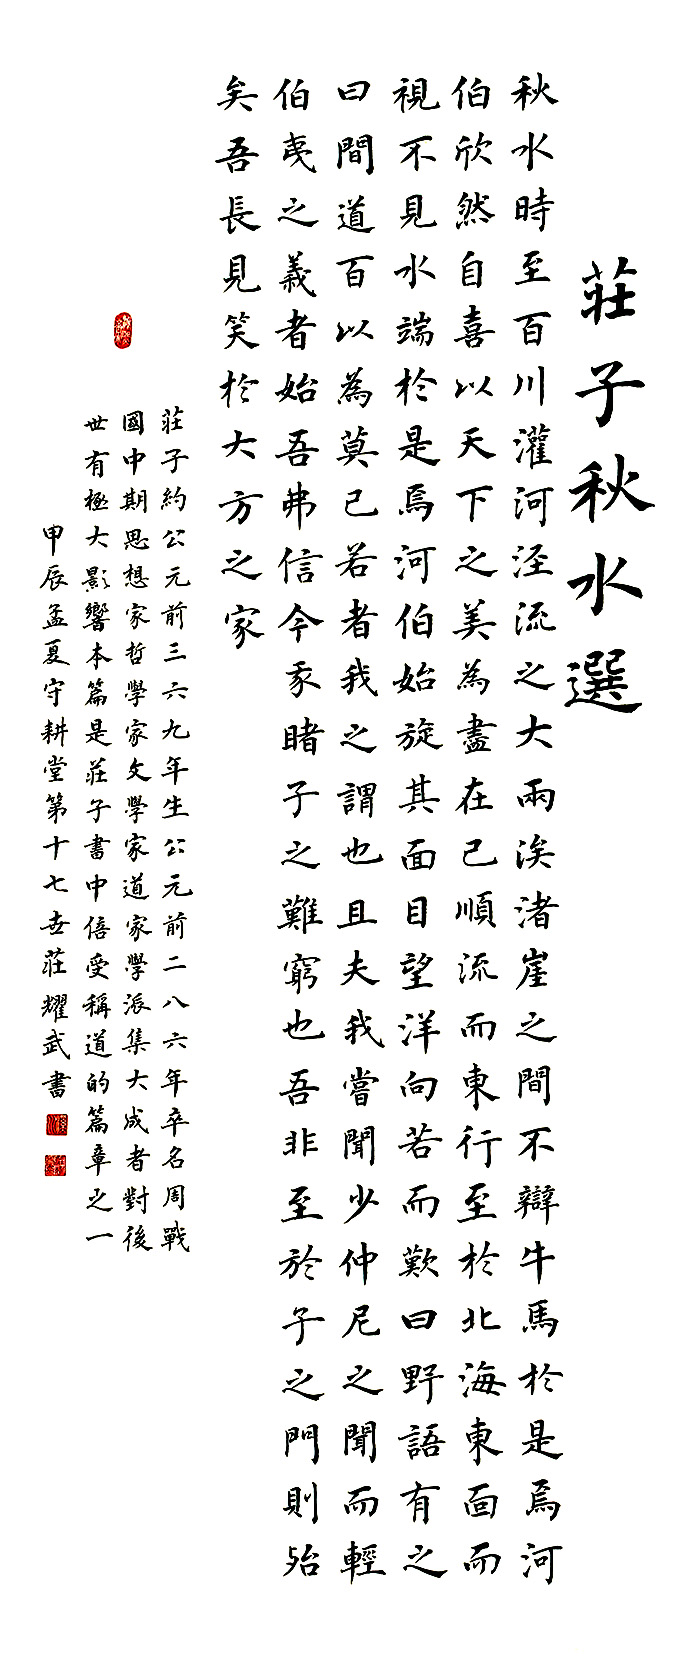 莊子秋水選
秋水時至百川灌河涇流之大兩涘渚崖之間不辯牛馬於是焉河
伯欣然自喜以天下之美為盡在己順流而東行至於北海東面而
視不見水端於是焉河伯始旋其面目望洋向若而歎曰野語有之
曰間道百以為莫己若者我之謂也且夫我嘗聞少仲尼之聞而輕
伯夷之義者始吾弗信今我睹子之難窮也吾非至於子之門則殆
矣吾長見笑於大方之家
莊子約公元前三六九年生公元前二八六年卒名周戰
國中期思想家哲學家文學家道家學派集大成者對後
世有極大影響本篇是莊子書中倍受稱道的篇章之一
甲辰孟夏守耕堂第十七世莊耀武書